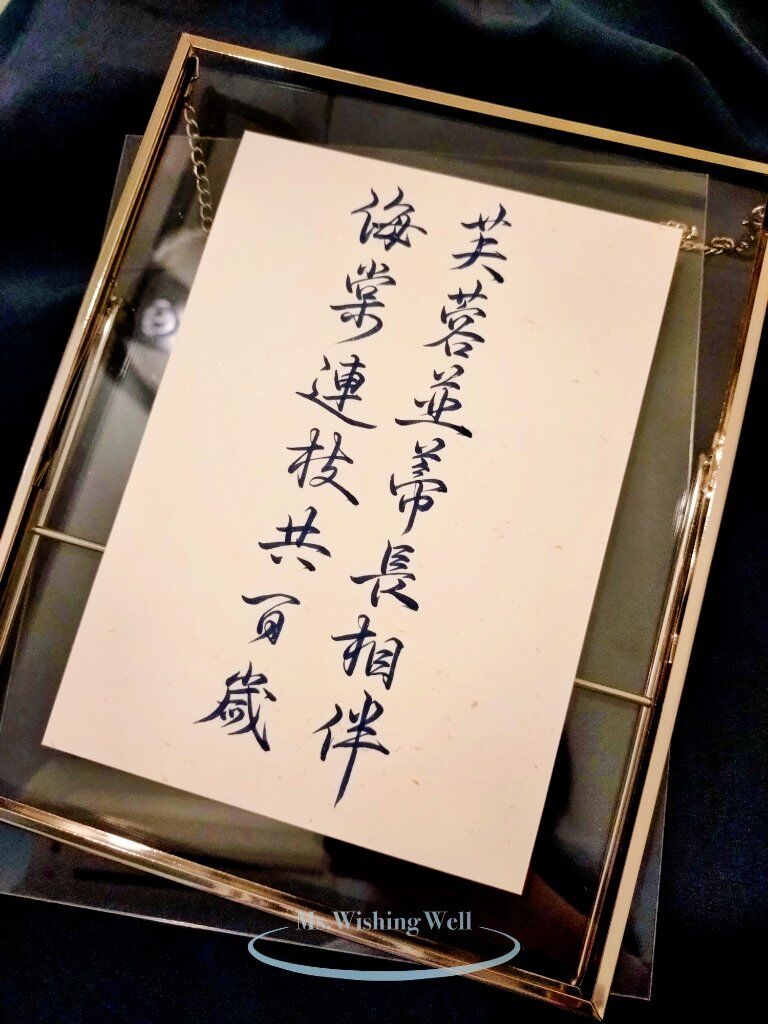 芙蓉並蒂長相伴
海棠連枝共百歲
Ms.WishingWell